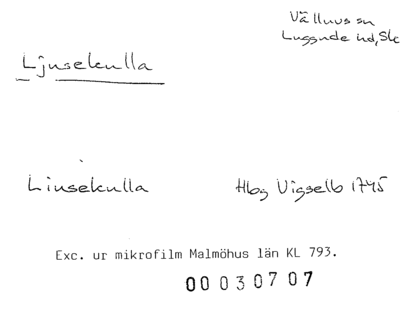 Välluvs sn
Luggude hd, Sk
Ljusekulla
Liusekulla Hbg Vigselb 1745
Exc. ur mikrofilm Malmöhus län KL 793.
00 030707